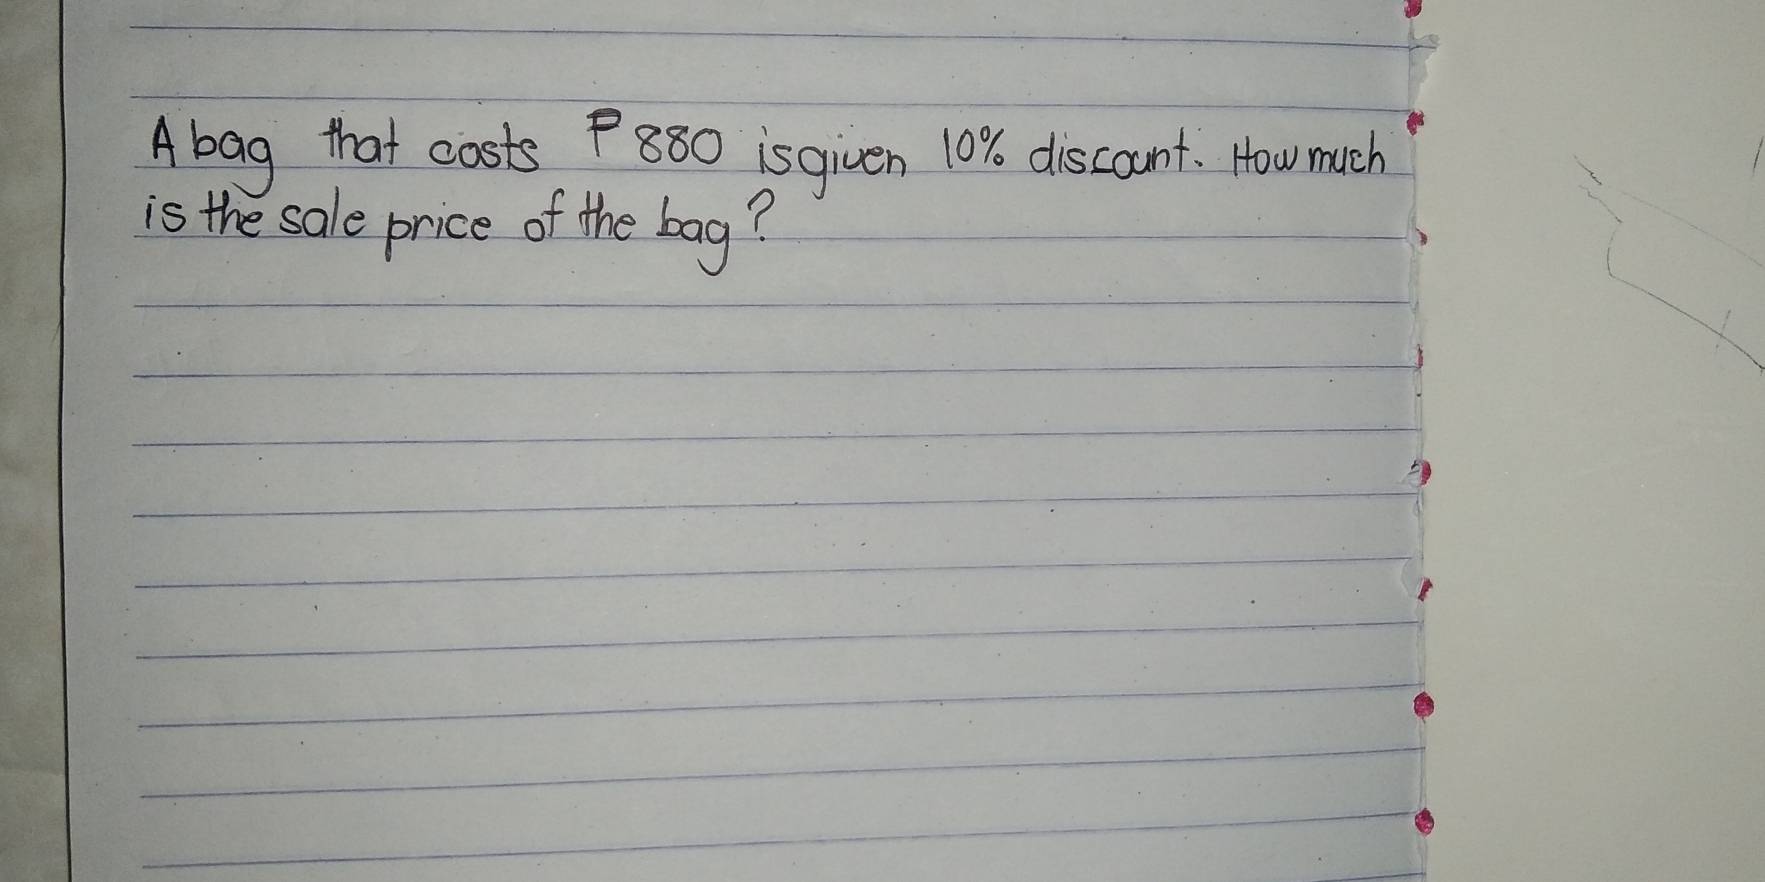 A bag that costs ₱880 is given 10% discount. How much
is the sale price of the bag?